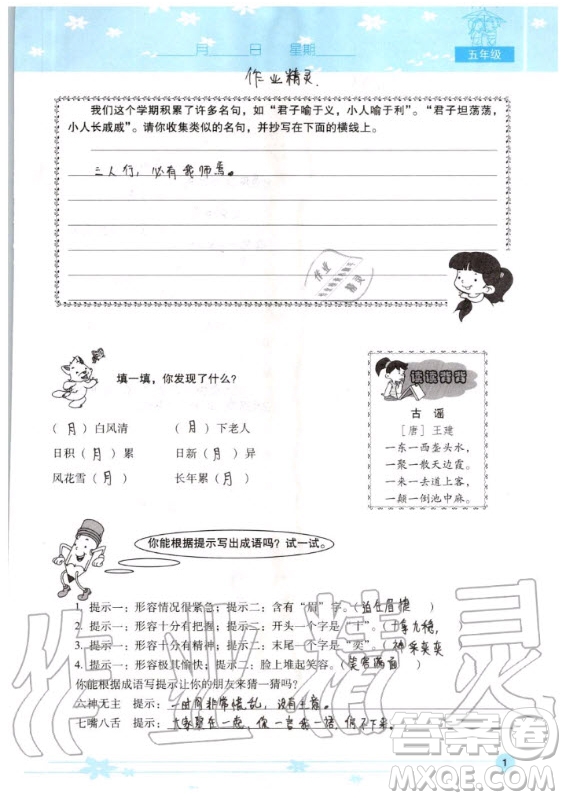 月 日 星期
五年级
作业精灵
我们这个学期积累了许多名句，如“君子喻于义，小人喻于利”。“君子坦荡荡，
小人长戚戚”。请你收集类似的名句，并抄写在下面的横线上。
三人行，必有我师焉。
作业
精灵
填一填，你发现了什么？
（月）白风清 （月）下老人
日积（月）累 日新（月）异
风花雪（月） 长年累（月）
读读背背
古 谣
［唐］王建
一东一西垄头水，
一聚一散天边霞。
一来一去道上客，
一颠一倒池中麻。
你能根据提示写出成语吗？试一试。
1. 提示一：形容情况很紧急；提示二：含有“眉”字。（迫在眉睫）
2. 提示一：形容十分有把握；提示二：开头一个字是“十”。（十拿九稳）
3. 提示一：形容十分有精神；提示二：末尾一个字是“奕”。（神采奕奕）
4. 提示一：形容极其愉快；提示二：脸上堆起笑容。（笑容满面）
你能根据成语写提示让你的朋友来猜一猜吗？
六神无主 提示：一时间非常慌乱，没有主意。
七嘴八舌 提示：大家聚在一起，你一言我一语，
作业精灵
答案圈
MXQE.COM
1